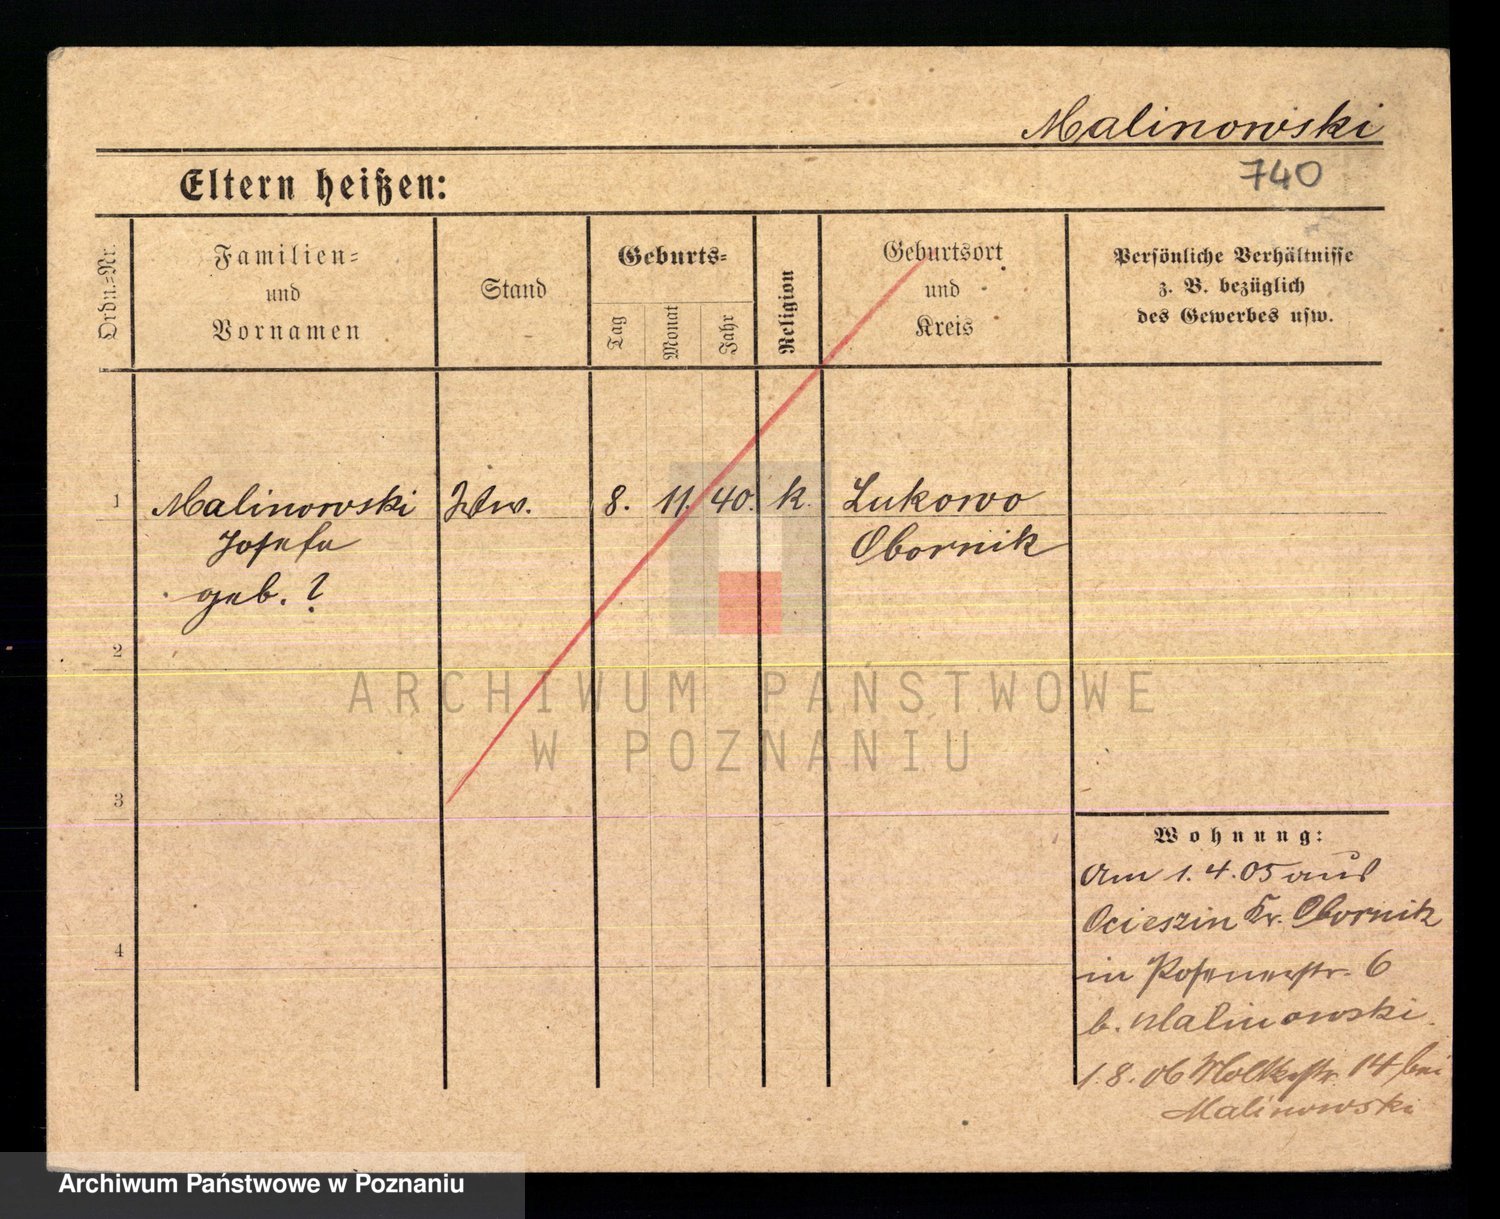 Malinowski
740
Eltern heißen:
Ordn.-Nr.
Familien-
und
Vornamen
Stand
Geburts-
Tag
Monat
Jahr
Religion
Geburtsort
und
Kreis
Persönliche Verhältnisse
z. B. bezüglich
des Gewerbes usw.
1 Malinowski Ww. 8. 11. 40. k. Lukowo
Josefa Obornik
geb. ?
2
3
4
ARCHIWUM PAŃSTWOWE
W POZNANIU
Wohnung:
Am 1. 4. 05 aus
Ocieszin Kr. Obornik
in Posenerstr. 6
b. Malinowski.
1. 8. 06 Moltkestr. 14 bei
Malinowski
Archiwum Państwowe w Poznaniu